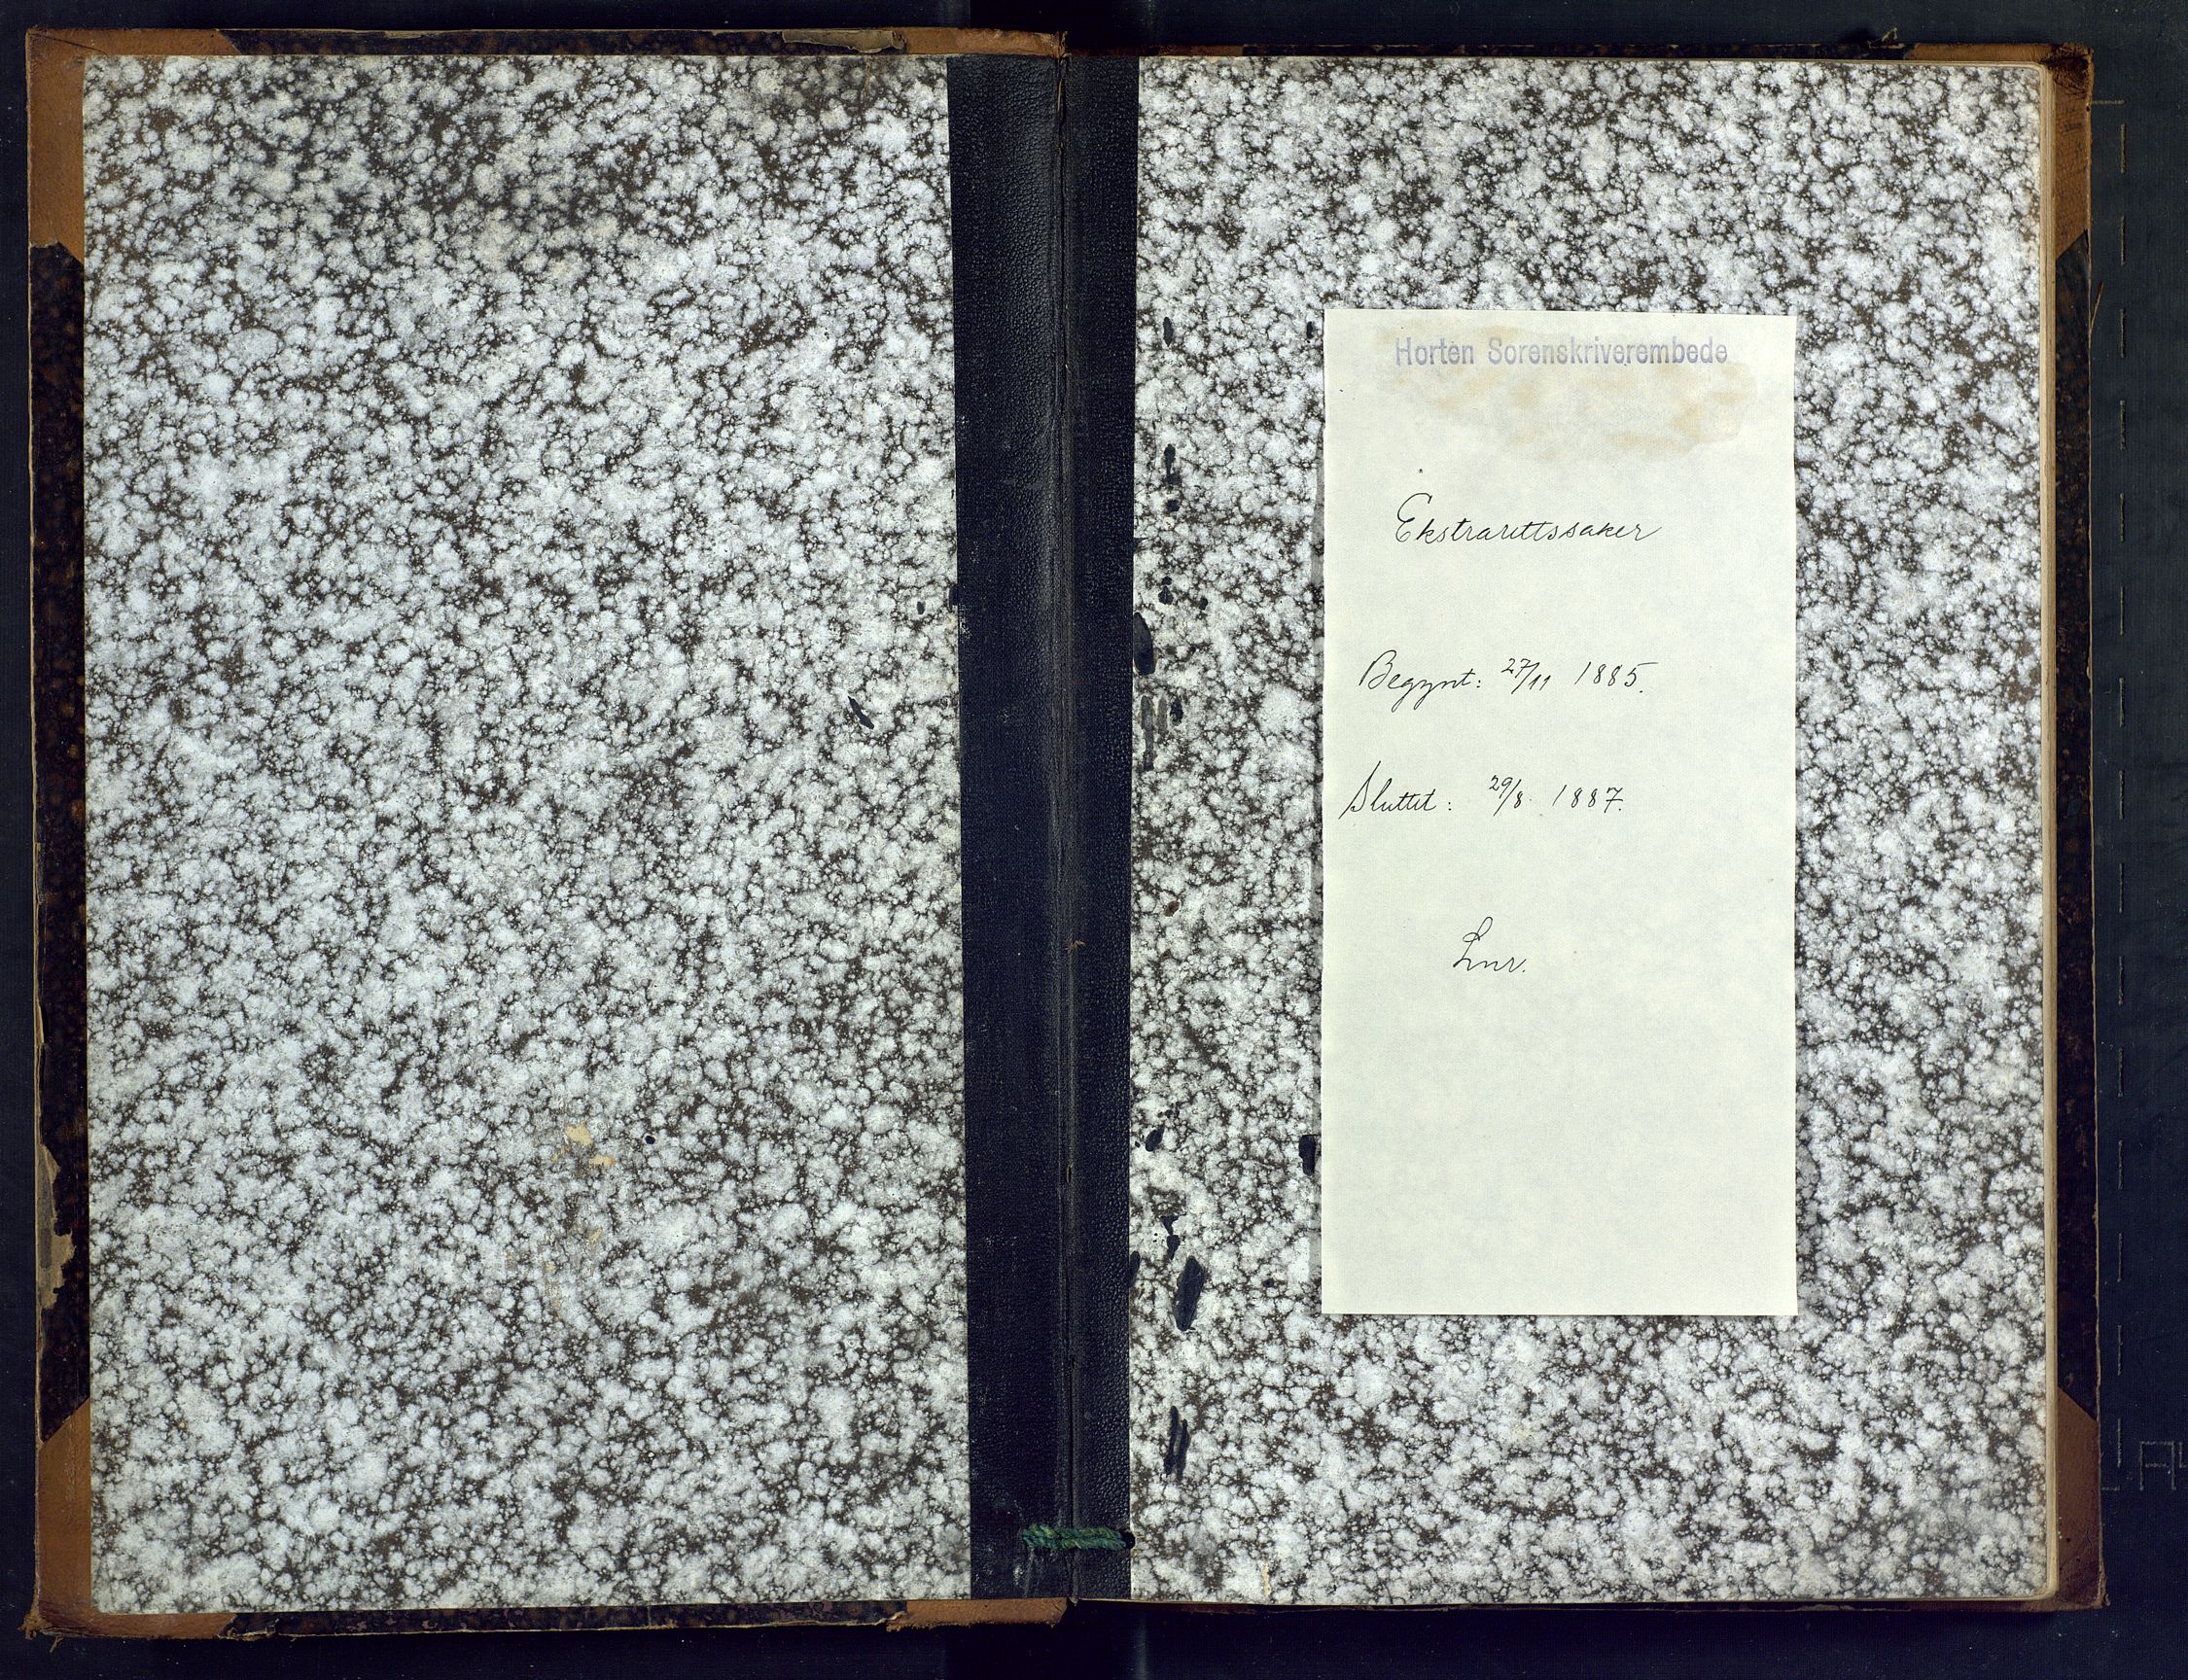 Horten Sorenskriverembede
Ekstrarettssaker
Begynt: 27/11 1885.
Sluttet: 29/8 1887.
Lnr.